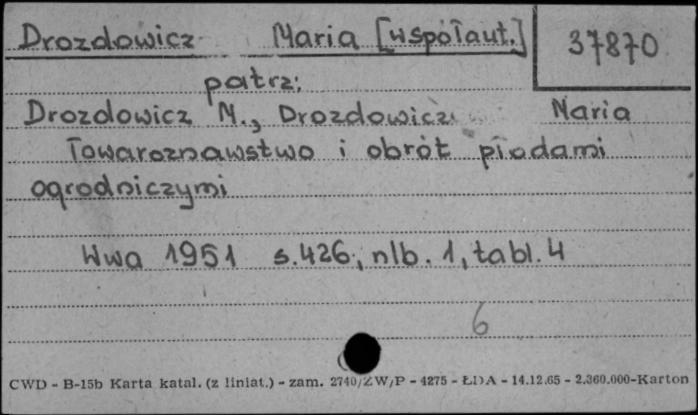 Drozdowicz Maria [współaut.] 37870
patrz:
Drozdowicz M., Drozdowicz Maria
Towaroznawstwo i obrót płodami
ogrodniczymi
Wwa 1951 s.426, nlb. 1, tabl. 4
6
CWD - B-15b Karta katal. (z liniat.) - zam. 2740/ZW/P - 4275 - ŁDA - 14.12.65 - 2.360.000-Karton